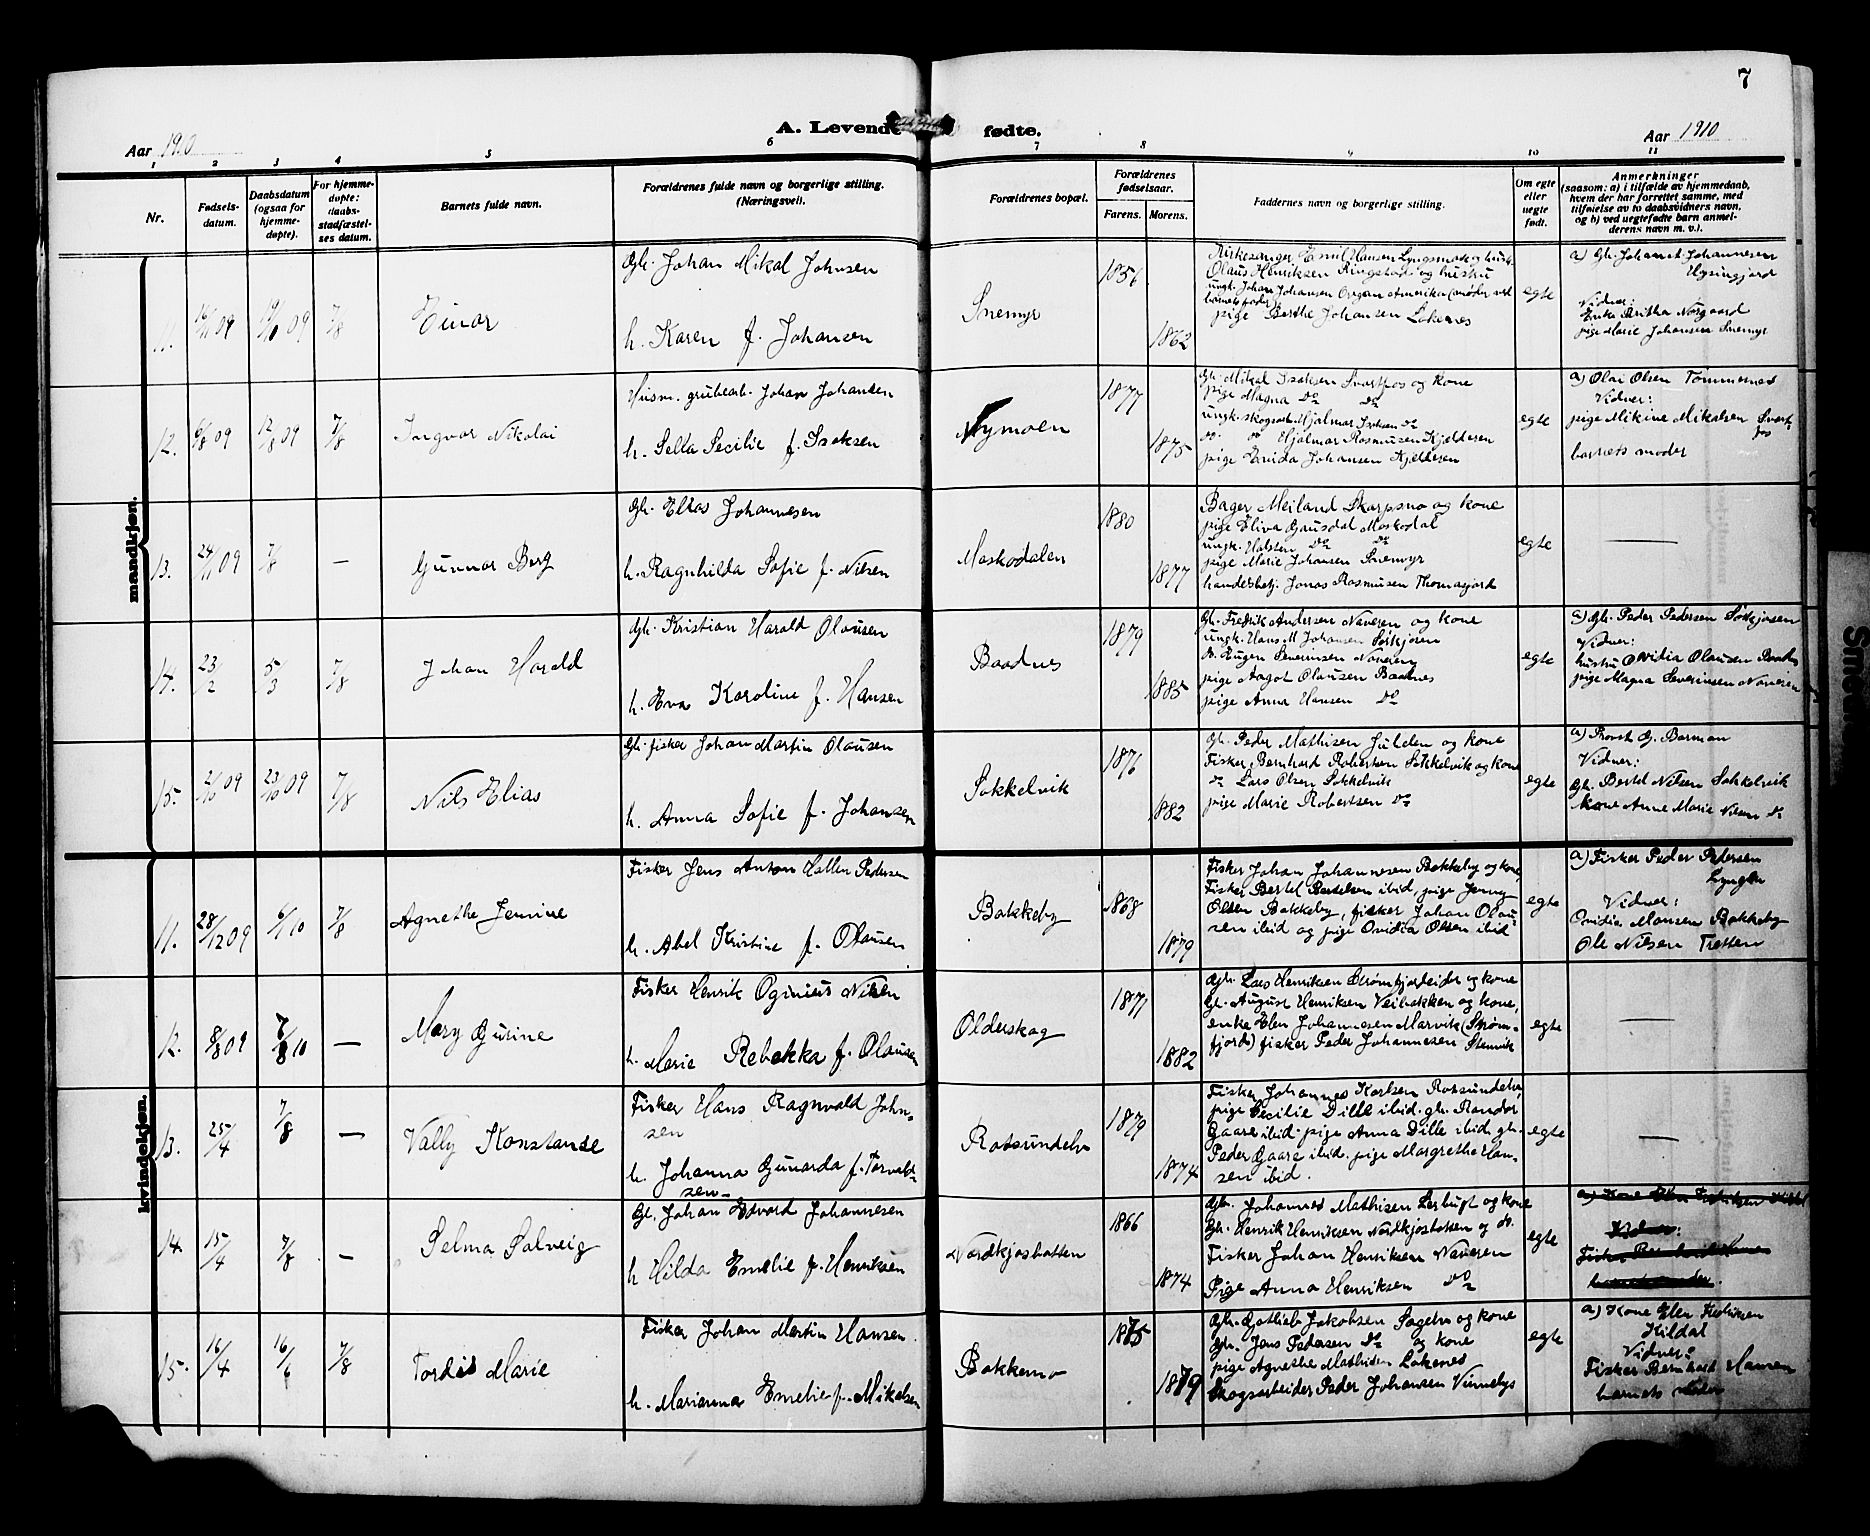 7
A. Levende fødte.
Aar 1910
Aar 1910
1 2 3 4 5 6 7 8 9 10 11
Nr.
Fødsels-
datum.
Daabsdatum
(ogsaa for
hjemme-
døpte).
For hjemme-
døpte:
daabs-
stadfæstel-
ses datum.
Barnets fulde navn.
Forældrenes fulde navn og borgerlige stilling.
(Næringsvei).
Forældrenes bopæl.
Forældrenes
fødselsaar.
Farens. Morens.
Faddernes navn og borgerlige stilling.
Om egte
eller
uegte
født.
Anmerkninger
(saasom: a) i tilfælde av hjemmedaab,
hvem der har forrettet samme, med
tilføielse av to daabsvidners navn,
og b) ved uegtefødte barn anmel-
derens navn m. v.).
mandkjøn.
11. 09 09 7/8
Einar
Gb. Johan Mikal Johnsen
h. Karen f. Johansen
Snemyr
1856
1862
Kirkesanger Emil Hansen Lyngsmark og hustr.
Olaus Henriksen Ringstad og hustru
ungk. Johan Johansen Oregon Amerika (møder ved
barnets fader)
pige Berthe Johansen Løkenes
egte
a) Gb. Johan Johannesen
Vidner:
Enke Norgaard
pige Marie Johansen Snemyr
12. 6/8 09 12/8 09 7/8
Ingvar Nikolai
Husm. grubearb. Johan Johansen
h. Sella Secilie f. Isaksen
Nymoen
1877
1875
Gb. Mikal Isaksen Svartfos og kone
pige Magna do do
ungk. skogsarb. Hjalmar Isaksen do
do. do Hjalmar Rasmusen Kjelderen
pige Davida Johansen Kjelderen
egte
a) Olai Olsen Tømmernes
Vidner:
pige Mikine Mikalsen Svart-
fos
barnets moder
13. 24/11 09 7/8 —
Gunnar Berg
Gb. Elias Johannesen
h. Ragnhilda Sofie f. Nilsen
Maskodalen
1880
1877
Bager Meiland Skarpsno og kone
pige Eliva Gausdal Maskodal
ungk. Halsten do do
pige Marie Johansen Snemyr
handelsbetj. Jonas Rasmusen Thomasjord
egte
—
14. 23/2 5/3 7/8
Johan Harald
Gb. Kristian Harald Olausen
h. Eva Karoline f. Hansen
Baadnes
1879
1885
Gb. Fredrik Andersen Naveren og kone
ungk. Hans M Johansen Sørkjosen
do. Eugen Severinsen Naveren
pige Aagot Olausen Baadnes
pige Anna Hansen do
egte
a) Gb. Peder Pedersen Sørkjosen
Vidner:
hustru Ovidia Olausen Baadnes
pige Magna Severinsen Naveren
15. 2/10 09 23/10 09 7/8
Nils Elias
Gb. fisker Johan Martin Olausen
h. Anna Sofie f. Johansen
Sokkelvik
1876
1882
Gb. Peder Mathisen Julden og kone
Fisker Bernhard Robertsen Sokkelvik og kone
do Lars Olsen Sokkelvik
pige Marie Robertsen do
egte
a) Provst G. Barman
Vidner:
Gb. Bertel Nilsen Sokkelvik
kone Anne Marie Nilsen do
kvindekjøn.
11. 28/12 09 6/1 10 7/8
Agnethe Jenine
Fisker Jens Anton Hallen Pedersen
h. Abel Kristine f. Olausen
Bakkeby
1868
1879
Fisker Johan Johannesen Bakkeby og kone,
Fisker Bertel Bertelsen ibid, pige Jenny
Olsen Bakkeby, fisker Johan Olau-
sen ibid og pige Ovidia Olsen ibid
egte
a) Fisker Peder Pedersen
Vidner:
Ovidia Hansen Bakkeby
Ole Nilsen Tretten
12. 8/8 09 7/8 10 —
Mary Gurine
Fisker Henrik Oginius Nilsen
h. Marie Rebekka f. Olausen
Olderskag
1877
1882
Gb. Lars Henriksen Strømfjordeidet og kone
Gb. August Henriksen Veibakken og kone,
enke Elen Johannesen Marvik (Strøm-
fjord) fisker Peder Johannesen Stenvik
egte
—
13. 25/4 7/8 —
Vally Konstanse
Fisker Hans Ragnvald John-
sen
h. Johanna Gunarda f. Torvald-
sen
Rotsundelv
1879
1874
Fisker Johannes Karlsen Rotsundelv,
pige Secilie Dille ibid. gb. Randor
Gaare ibid. pige Anna Dille ibid. gb.
Peder Gaare ibid. pige Margrethe Han-
sen ibid.
egte
—
14. 15/4 7/8 —
Selma Solveig
Gb. Johan Edvard Johannesen
h Hilda Emelie f. Henriksen
Nordkjosbotten
1866
1874
Gb. Johannes Mathisen og kone
Gb. Henrik Henriksen Nordkjosbotten og do.
Fisker Johan Henriksen Naveren
Pige Anna Henriksen do
egte
15. 16/4 16/6 7/8
Tordis Marie
Fisker Johan Martin Hansen
h. Marianna Emelie f. Mikalsen
Bakkemo
1875
1879
Gb. Gotlieb Jakobsen Sagelv og kone
Gb. Jens Pedersen do og kone
pige Agnethe Mathisen Løkenes
Skogsarbeider Peder Johansen Vinnelys
egte
a) Kone Elen Fredriksen
Kildal
Vidner:
Fisker Bernhard Hansen
barnets